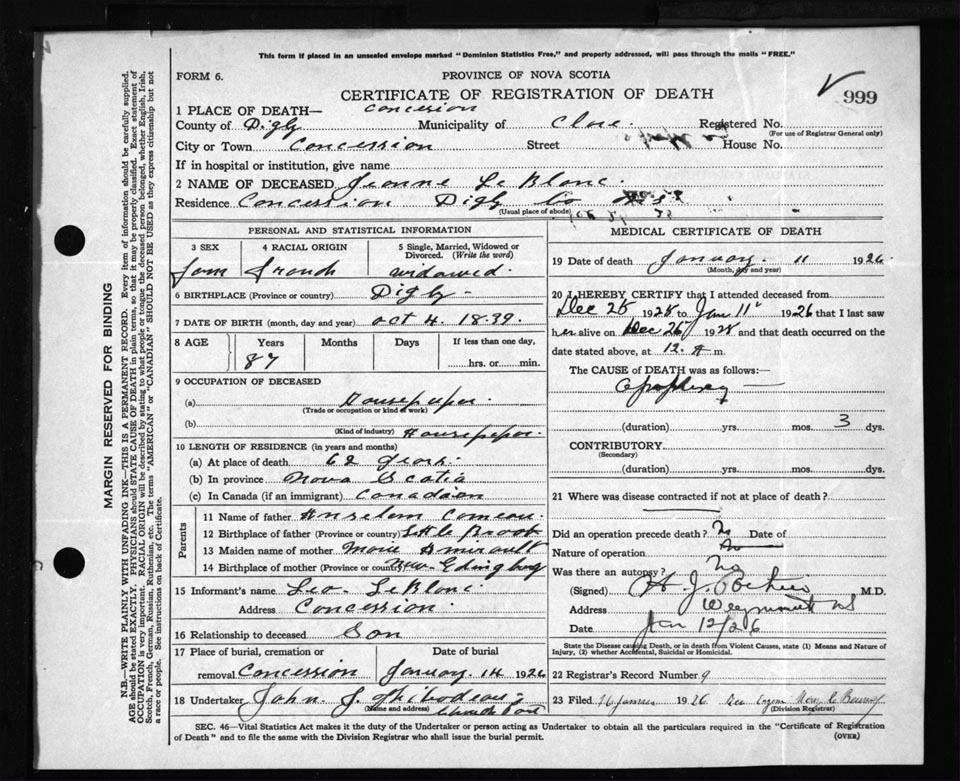 This form if placed in an unsealed envelope marked "Dominion Statistics Free," and properly addressed, will pass through the mails "FREE."
FORM 6.
PROVINCE OF NOVA SCOTIA
CERTIFICATE OF REGISTRATION OF DEATH
999
1 PLACE OF DEATH— Concession
County of Digby Municipality of Clare. Registered No.
(For use of Registrar General only)
City or Town Concession Street House No.
If in hospital or institution, give name
2 NAME OF DECEASED Jeanne LeBlanc.
Residence Concession Digby Co
(Usual place of abode)
PERSONAL AND STATISTICAL INFORMATION
3 SEX
4 RACIAL ORIGIN
5 Single, Married, Widowed or Divorced. (Write the word)
Fem French widowed.
6 BIRTHPLACE (Province or country) Digby -
7 DATE OF BIRTH (month, day and year) Oct 4. 1839.
8 AGE Years Months Days If less than one day,
87 hrs. or min.
9 OCCUPATION OF DECEASED
(a) Housekeeper
(Trade or occupation or kind of work)
(b)
(Kind of industry)
10 LENGTH OF RESIDENCE (in years and months)
(a) At place of death 62 years.
(b) In province Nova Scotia
(c) In Canada (if an immigrant) Canadaien
Parents
11 Name of father Anselem Comeau
12 Birthplace of father (Province or country) Little Brook
13 Maiden name of mother Marie Amirault
14 Birthplace of mother (Province or country) New Edingburg
15 Informant's name Leo LeBlanc
Address Concession
16 Relationship to deceased Son
17 Place of burial, cremation or removal Concession
Date of burial January 14 1926
18 Undertaker John J. Thibodeau
(Name and address) Church Point
MEDICAL CERTIFICATE OF DEATH
19 Date of death January 11 1926
(Month, day and year)
20 I HEREBY CERTIFY that I attended deceased from
Dec 25 192 to Jan 11 1926 that I last saw
her alive on Dec 25 192 and that death occurred on
date stated above, at 12. A m.
The CAUSE of DEATH was as follows:—
Apoplexy
(duration) yrs. mos. 3 dys.
CONTRIBUTORY
(Secondary)
(duration) yrs. mos. dys.
21 Where was disease contracted if not at place of death?
Did an operation precede death? No Date of
Nature of operation
Was there an autopsy? No
(Signed) H. J. M.D.
Address Weymouth NS
Date Jan 12/26
State the Disease causing Death, or in death from Violent Causes, state (1) Means and Nature of Injury, (2) whether Accidental, Suicidal or Homicidal.
22 Registrar's Record Number 9
23 Filed 1926
(Division Registrar)
SEC. 46—Vital Statistics Act makes it the duty of the Undertaker or person acting as Undertaker to obtain all the particulars required in the "Certificate of Registration of Death" and to file the same with the Division Registrar who shall issue the burial permit.
(OVER)
MARGIN RESERVED FOR BINDING
N.B.—WRITE PLAINLY WITH UNFADING INK—THIS IS A PERMANENT RECORD. Every item of information should be carefully supplied.
AGE should be stated EXACTLY. PHYSICIANS should STATE CAUSE OF DEATH in plain terms, so that it may be properly classified. Exact statement of
OCCUPATION is very important. RACIAL ORIGIN will be described by stating to what people or tongue the deceased person belonged, whether English, Irish,
Scotch, French, German, Russian, Ruthenian, etc. The terms "AMERICAN" or "CANADIAN" SHOULD NOT BE USED as they express citizenship but not
a race or people. See instructions on back of Certificate.